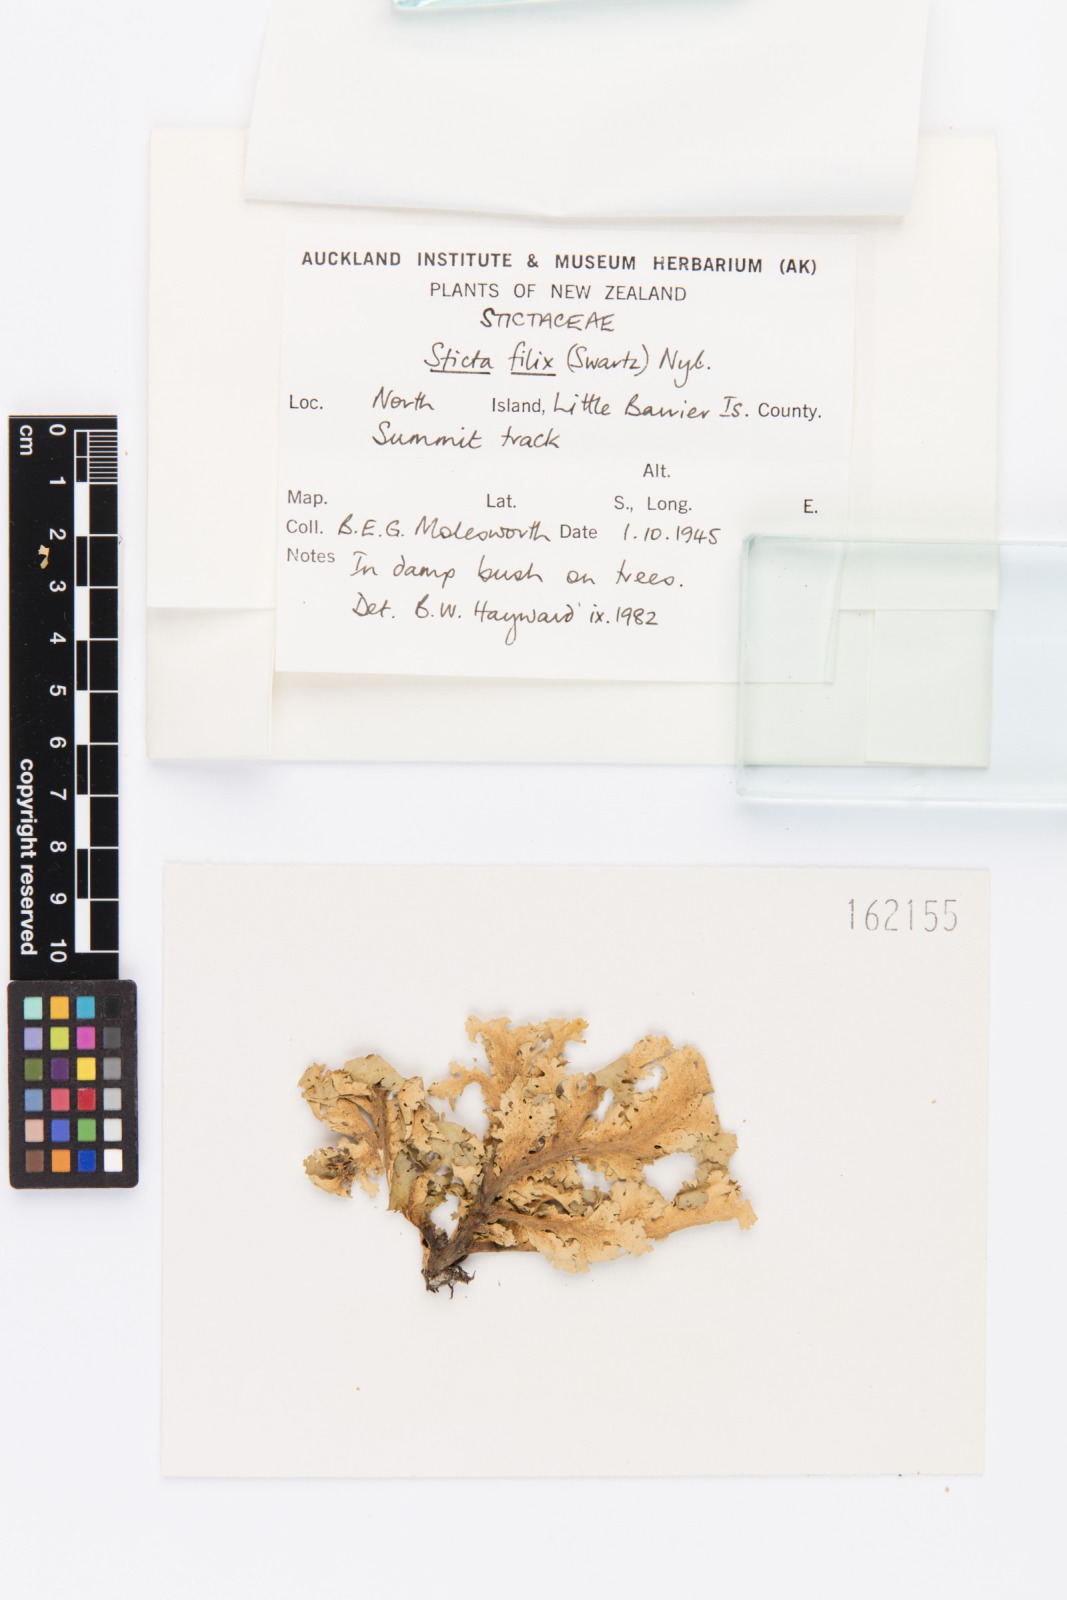 AUCKLAND INSTITUTE & MUSEUM HERBARIUM (AK)
PLANTS OF NEW ZEALAND
STICTACEAE
Sticta filix (Swartz) Nyl.
Loc. North Island, Little Barrier Is. County.
Summit track
Alt.
Map. Lat. S., Long. E.
Coll. B.E.G. Molesworth Date 1.10.1945
Notes In damp bush on trees.
Det. B.W. Hayward ix.1982
cm 0 1 2 3 4 5 6 7 8 9 10
copyright reserved
162155